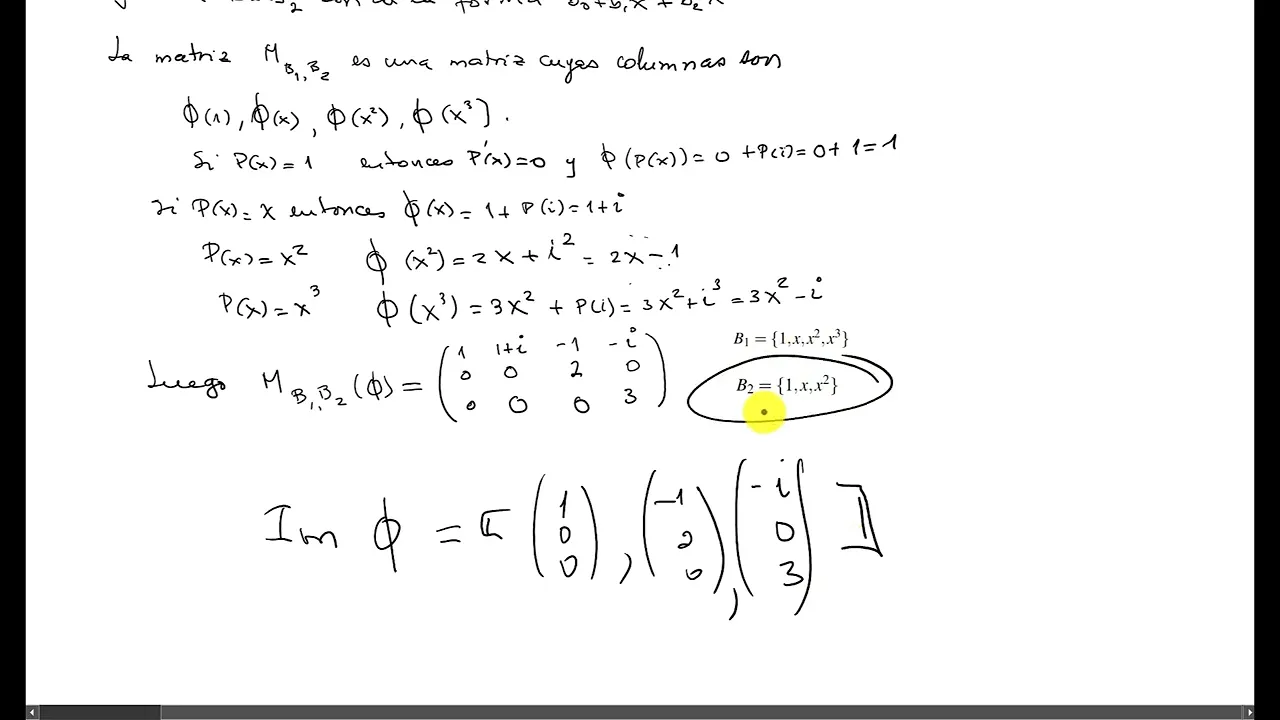 son de la forma b₀+b₁x+b₂x
La matriz M_{B₁,B₂} es una matriz cuyas columnas son
ϕ(1), ϕ(x), ϕ(x²), ϕ(x³).
Si P(x)=1 entonces P'(x)=0 y ϕ(P(x))=0+P(i)=0+1=1
Si P(x)=x entonces ϕ(x)=1+P(i)=1+i
P(x)=x² ϕ(x²)=2x+i²=2x-1
P(x)=x³ ϕ(x³)=3x²+P(i)=3x²+i³=3x²-i
B₁ = {1,x,x²,x³}
1 1+i -1 -i
Luego M_{B₁,B₂}(ϕ)= 0 0 2 0
B₂ = {1,x,x²}
0 0 0 3
Im ϕ = [(1 0 0), (-1 2 0), (-i 0 3)]